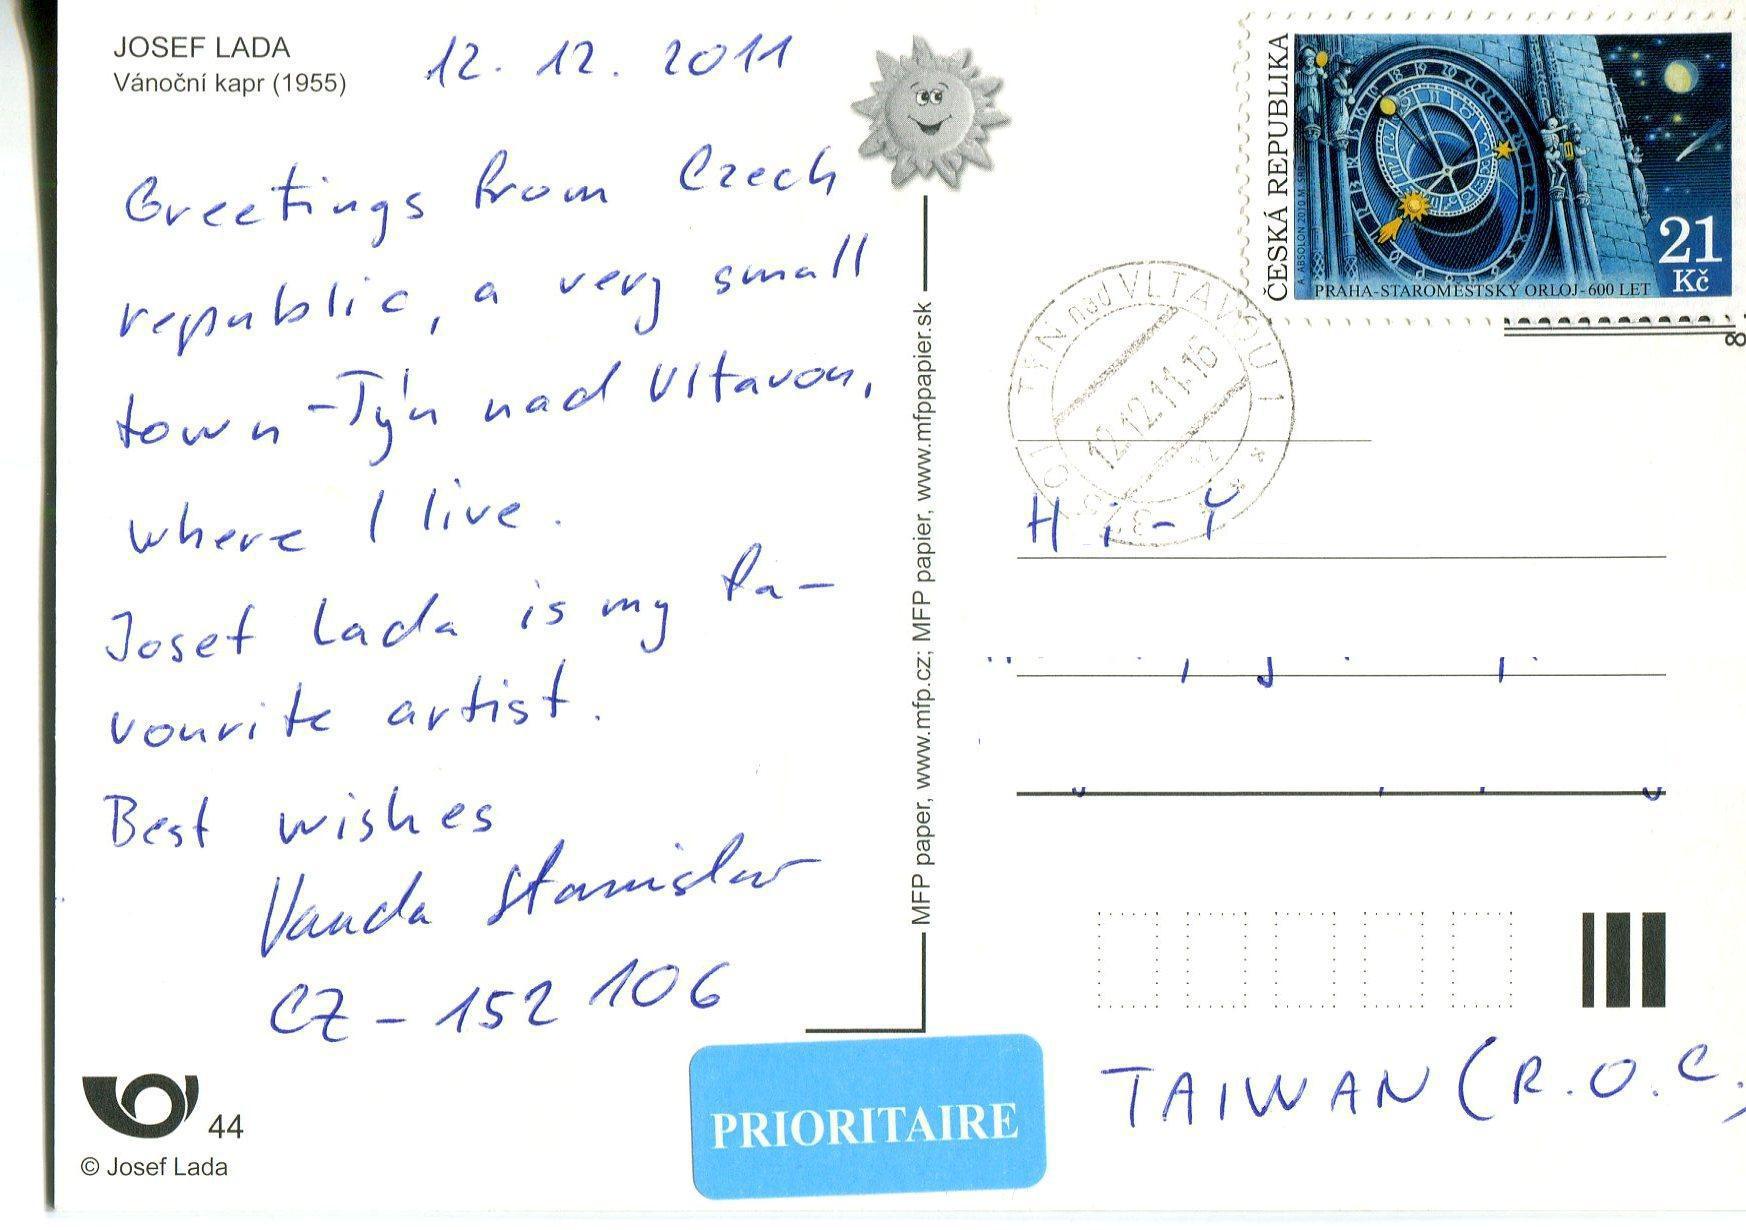 JOSEF LADA
Vánoční kapr (1955)
12. 12. 2011
Greetings from Czech
republic, a very small
town - Týn nad Vltavou,
where I live.
Josef Lada is my fa-
vourite artist.
Best wishes
Vanda Stanislav
CZ - 152 106
44
© Josef Lada
MFP paper, www.mfp.cz; MFP papier, www.mfppapier.sk
PRIORITAIRE
ČESKÁ REPUBLIKA
A. ABSOLON 2010
PRAHA-STAROMĚSTSKÝ ORLOJ-600 LET
21
Kč
TÝN nad VLTAVOU 1
12.12.11-16
H i-Y
TAIWAN (R.O.C.)